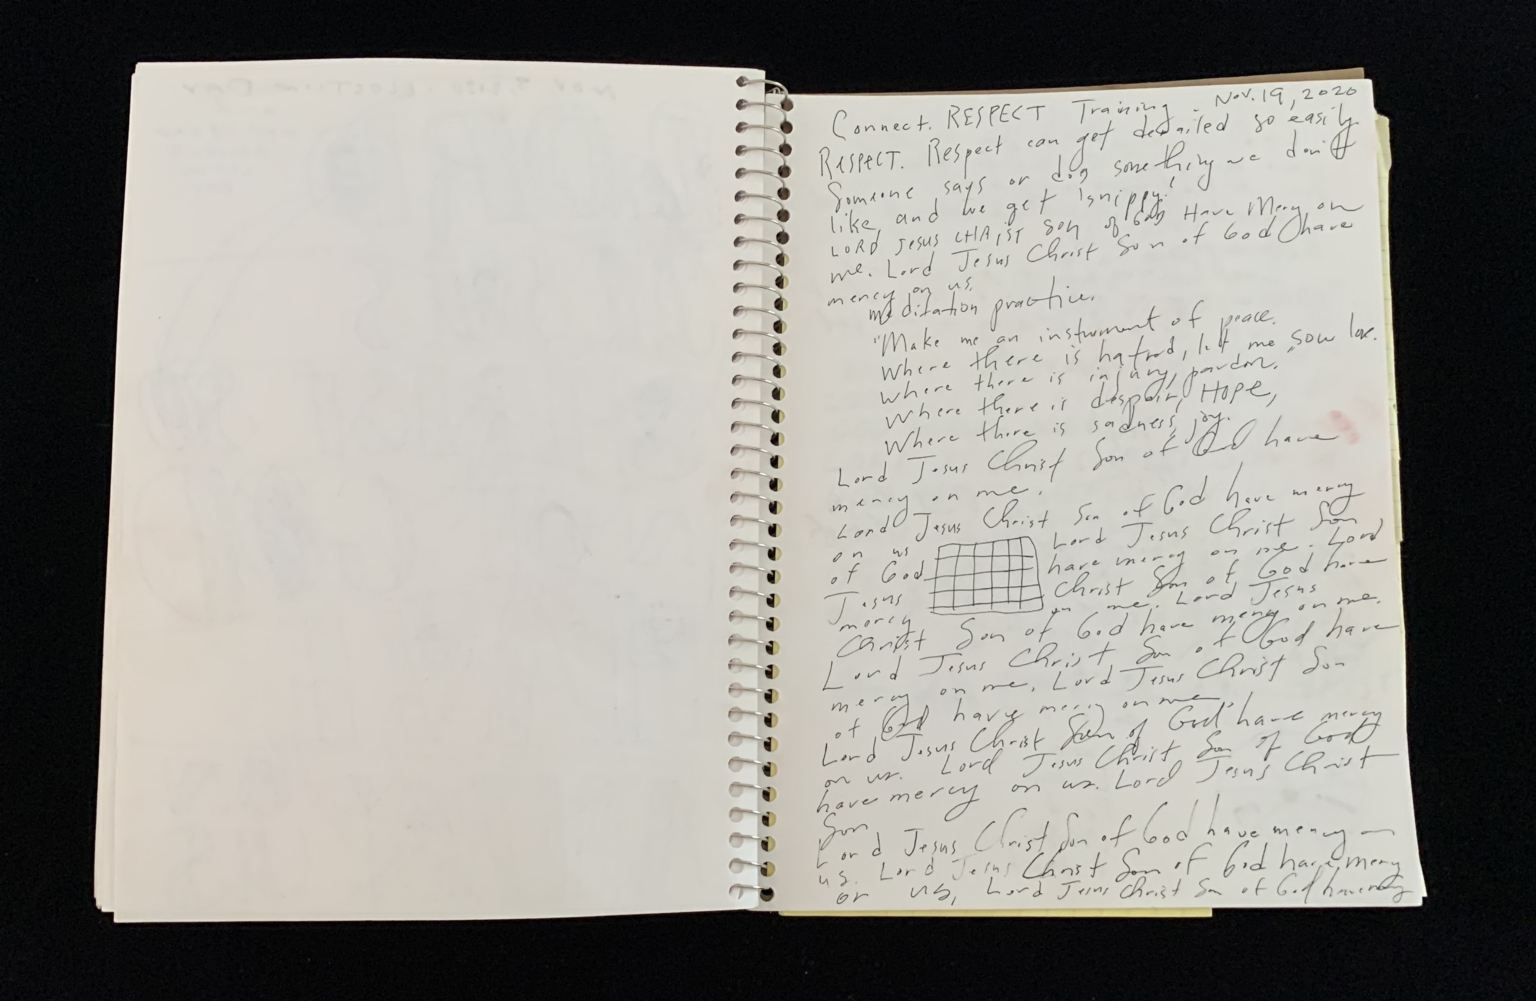 Nov. 19, 2020
Connect. RESPECT Training.
RESPECT. Respect can get derailed so easily
Someone says or does something we don't
like, and we get snippy!
LORD JESUS CHRIST Son of GOD Have Mercy on
me. Lord Jesus Christ Son of God have
mercy on us.
meditation practice.
"Make me an instrument of peace.
Where there is hatred, let me sow love.
Where there is injury, pardon.
Where there is despair, HOPE,
Where there is sadness, joy.
Lord Jesus Christ Son of God have
mercy on me.
Lord Jesus Christ Son of God have mercy
on us Lord Jesus Christ Son
of God have mercy on me. Lord
Jesus Christ Son of God have
mercy on me. Lord Jesus
Christ Son of God have mercy on me.
Lord Jesus Christ Son of God have
mercy on me. Lord Jesus Christ Son
of God have mercy on me
Lord Jesus Christ Son of God have mercy
on us. Lord Jesus Christ Son of God
have mercy on us. Lord Jesus Christ
Son
Lord Jesus Christ Son of God have mercy on
us. Lord Jesus Christ Son of God have mercy
on us, Lord Jesus Christ Son of God have mercy